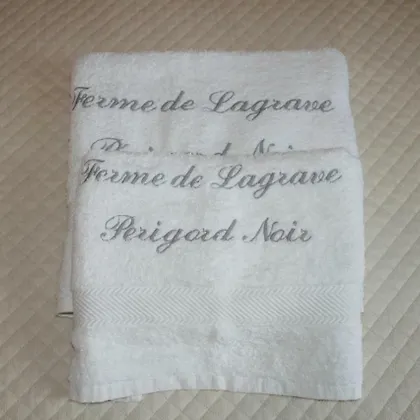 Ferme de Lagrave
Perigord Noir
Ferme de Lagrave
Perigord Noir